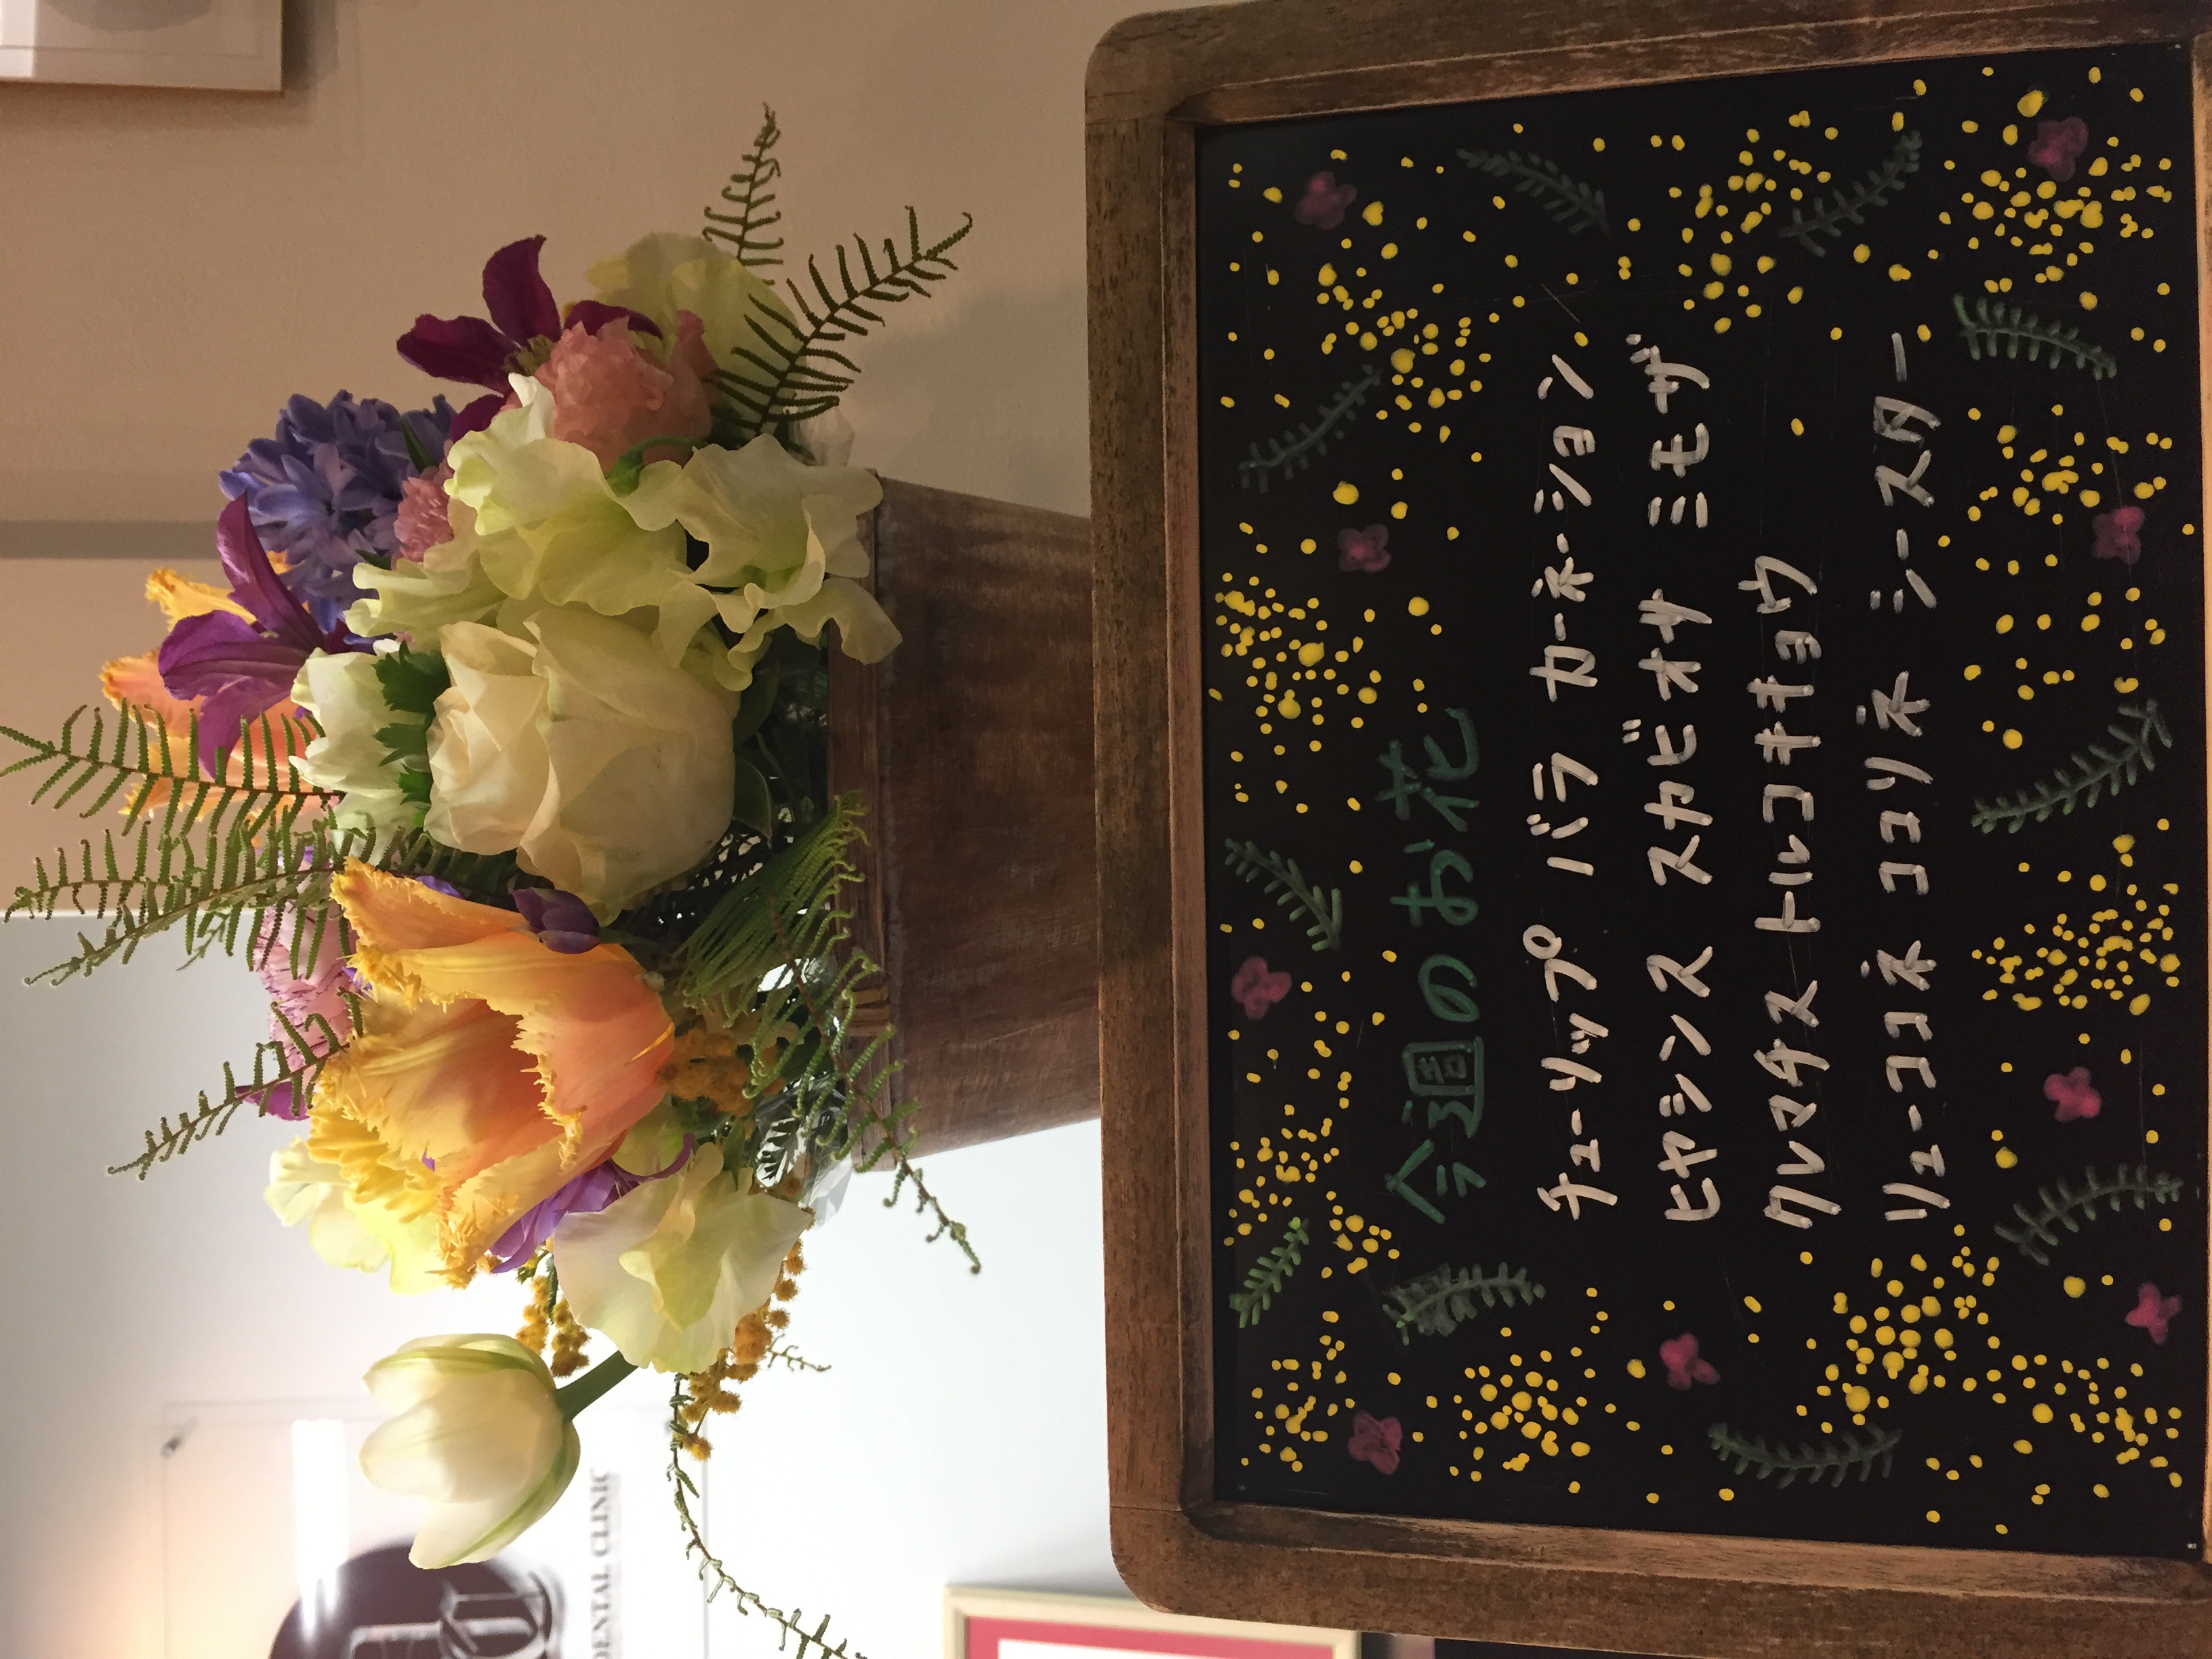 DENTAL CLINIC
今週のお花
チューリップ バラ カーネーション
ヒヤシンス スカビオサ ミモザ
クレマチス トルコキキョウ
リューココネ ココリネ シースター